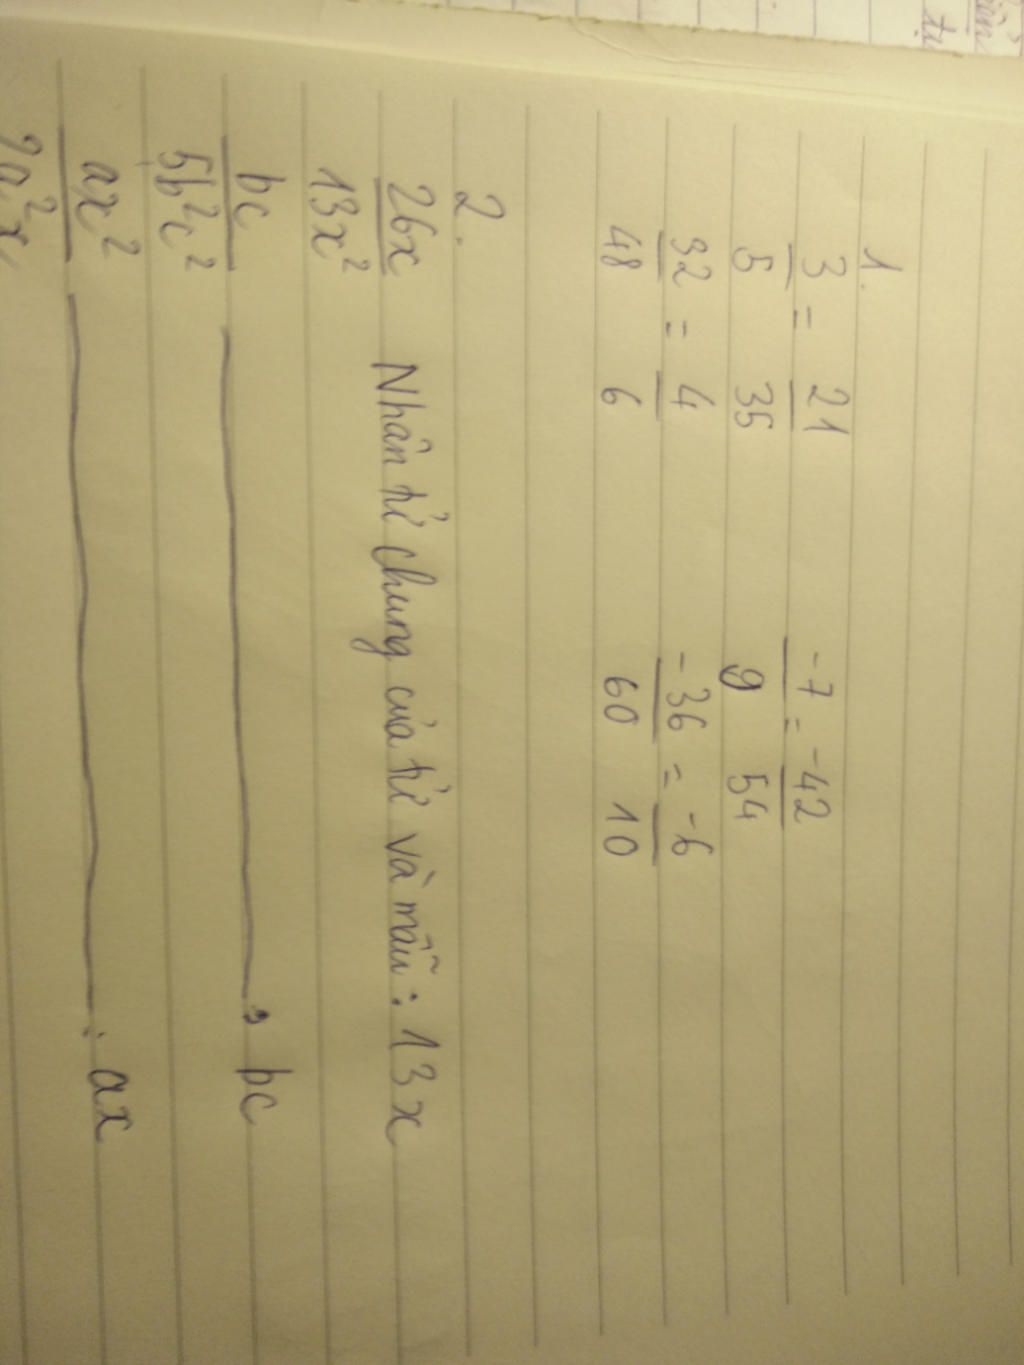 1.
3/5 = 21/35    -7/9 = -42/54
32/48 = 4/6    -36/60 = -6/10
2.
26x/13x² Nhân tử chung của tử và mẫu : 13x
bc/5b²c² ——— : bc
ax²/ a²x ——— : ax